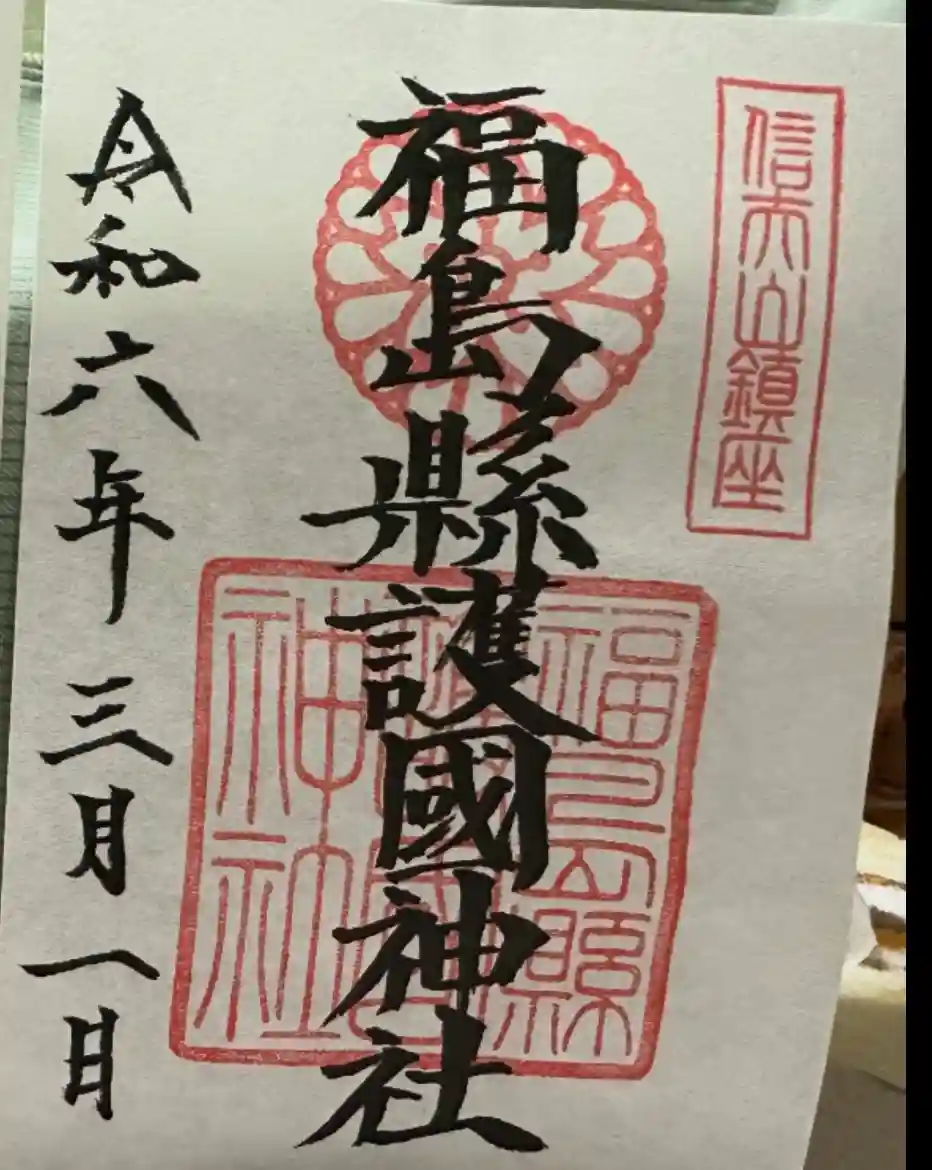 信夫山鎮座
福島縣護國神社
福島縣護國神社
令和六年三月一日